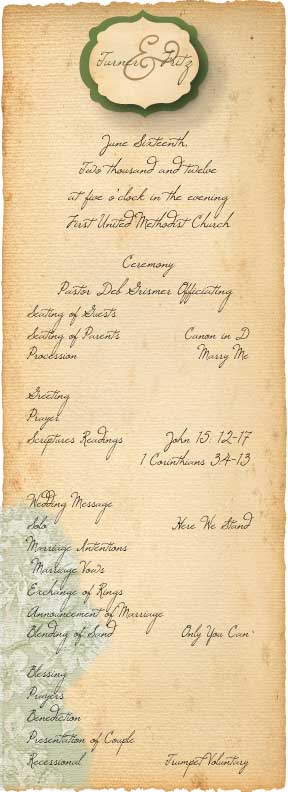 Turner & Pitz
June Sixteenth,
Two thousand and twelve
at five o'clock in the evening
First United Methodist Church
Ceremony
Pastor Deb Grismer Officiating
Seating of Guests
Seating of Parents Canon in D
Procession Marry Me
Greeting
Prayer
Scriptures Readings John 15: 12-17
1 Corinthians 34-13
Wedding Message
Solo Here We Stand
Marriage Intentions
Marriage Vows
Exchange of Rings
Announcement of Marriage
Blending of Sand Only You Can
Blessing
Prayers
Benediction
Presentation of Couple
Recessional Trumpet Voluntary